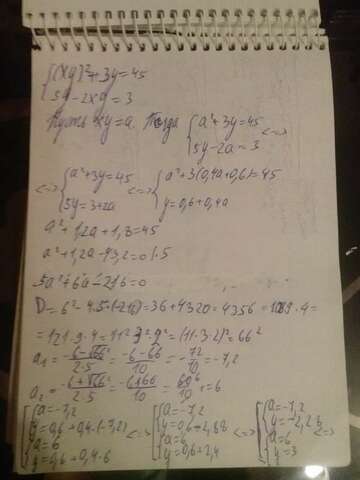 {(xy)²+3y=45
{5y-2xy=3
Пусть xy=a. Тогда {a²+3y=45 {5y-2a=3 <=>
<=> {a²+3y=45 {5y=3+2a <=> {a²+3(0,4a+0,6)=45 {y=0,6+0,4a
a²+1,2a+1,8=45
a²+1,2a-43,2=0 |·5
5a²+6a-216=0
D=6²-4·5·(-216)=36+4320=4356=1089·4=
=121·9·4=11²·3²·2²=(11·3·2)²=66²
a₁=(-6-√66²)/(2·5)=(-6-66)/10=-72/10=-7,2
a₂=(-6+√66²)/(2·5)=(-6+66)/10=60/10=6
[{a=-7,2 {y=0,6+0,4·(-7,2) {a=6 {y=0,6+0,4·6 <=> [{a=-7,2 {y=0,6-2,88 {a=6 {y=0,6+2,4 <=> [{a=-7,2 {y=-2,28 {a=6 {y=3 <=>